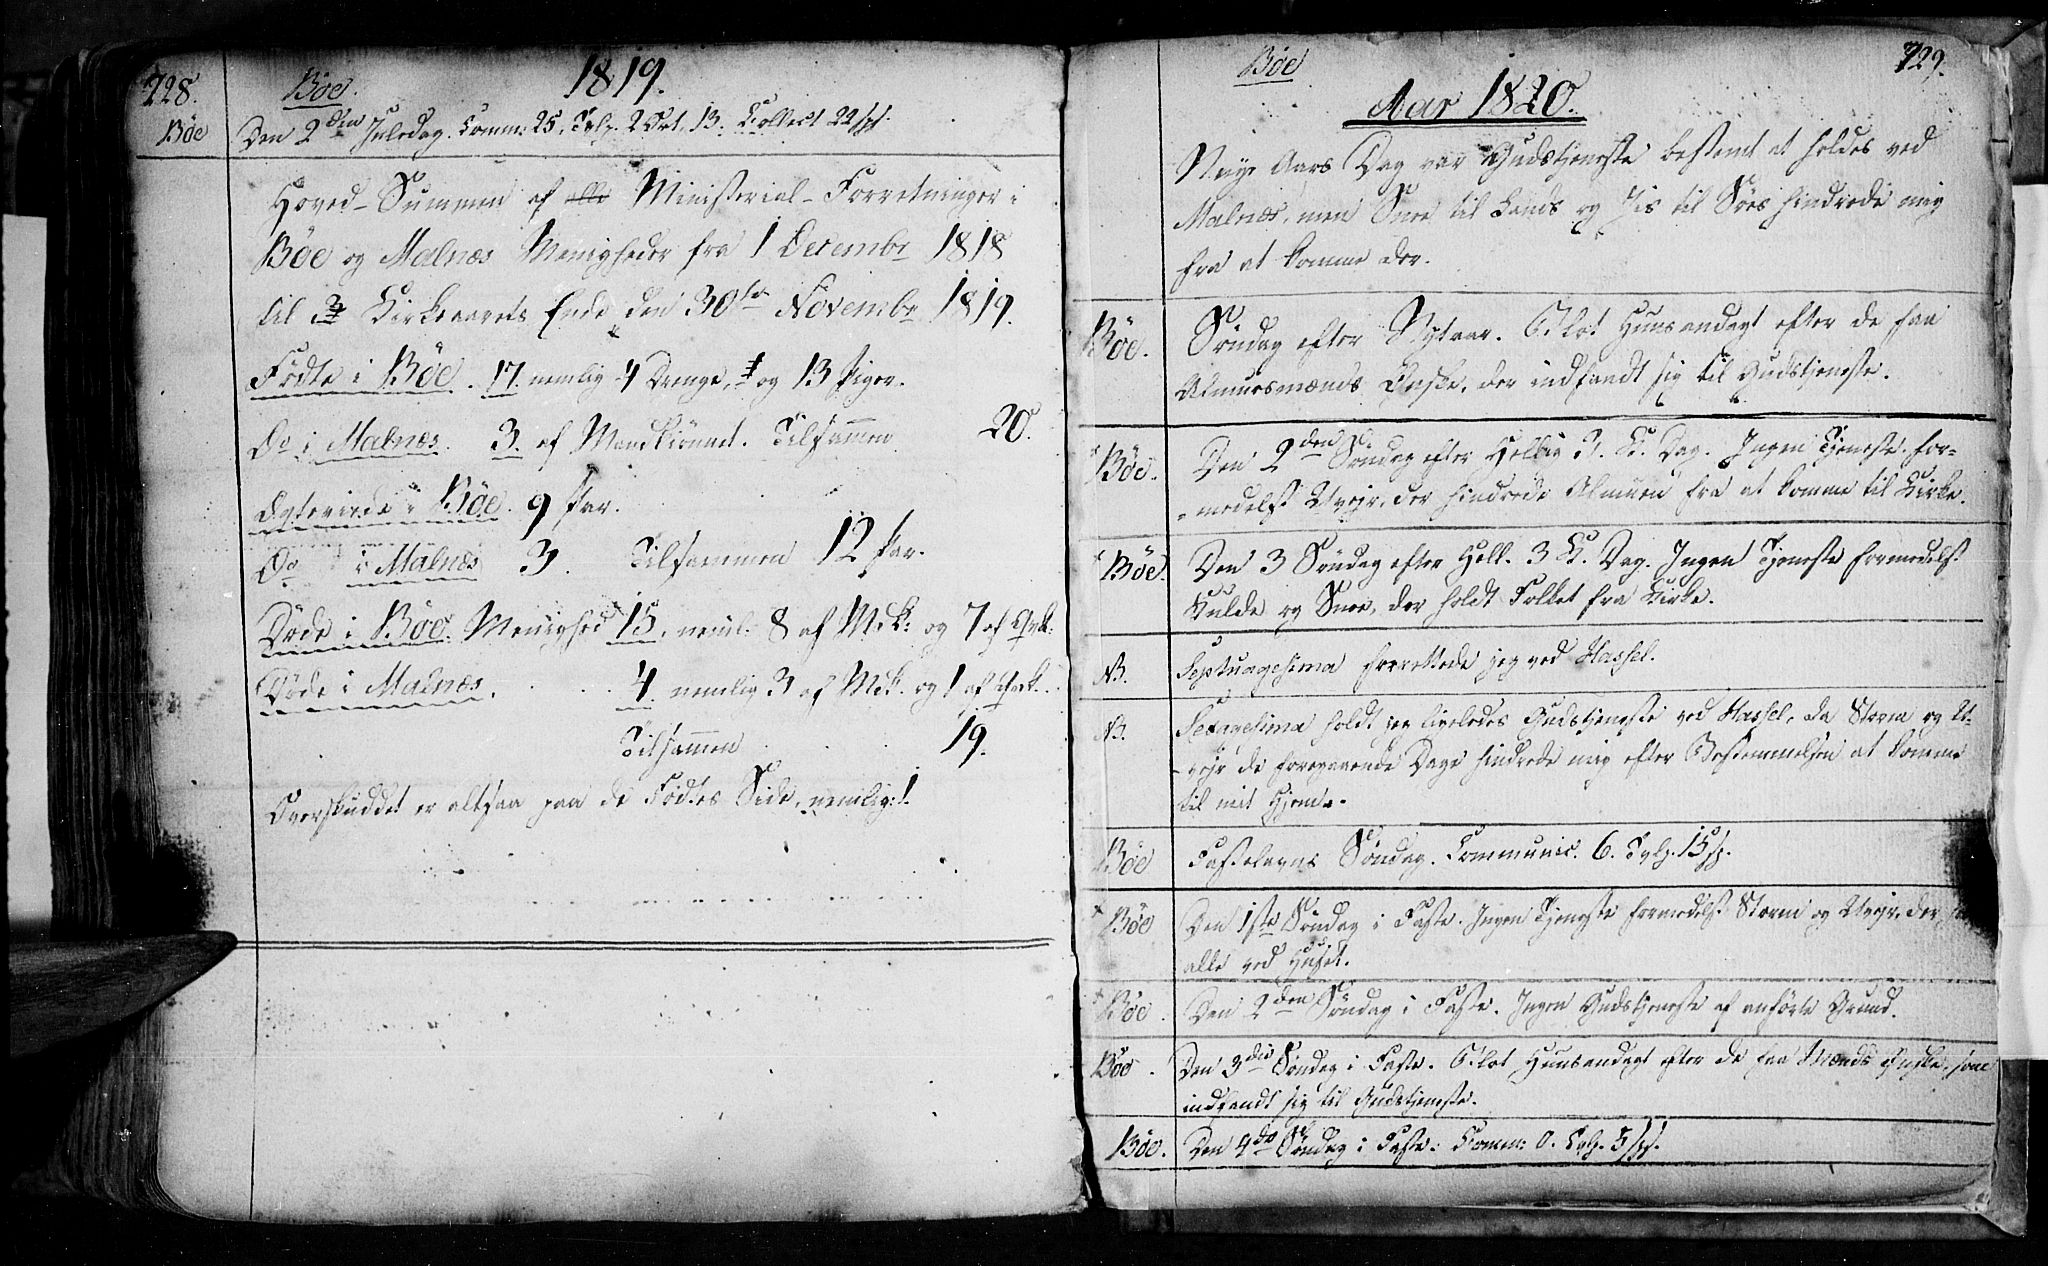 728.
Bøe.
1819.
Bøe
Den 2den Juledag. Comm: 25. Tvlg. 2 Ort. 13. Collect 22 sp.
Hoved-Summen af alle Ministerial-Forretninger i
Bøe og Malnæs Menigheder fra 1 Decembr 1818
til Kirkeaarets Ende den 30te Novembr 1819.
Fødte i Bøe. 17. nemlig 4 Drenge, og 13 Piger.
Do i Malnæs. 3. af Mandkiønnet. Tilsammen 20.
Ægteviede i Bøe. 9 Par.
Do i Malnæs 3. Tilsammen 12 Par.
Døde i Bøe Menighed 15, neml. 8 af Mdk: og 7 af Qvk:
Døde i Malnæs. 4. nemlig 3 af Mdk. og 1 af Qvk.
Tilsammen 19.
Overskuddet er altsaa paa de Fødtes Side, nemlig: 1.
Bøe
729.
Aar 1820.
Nye Aars Dag var Gudstjeneste bestemt at holdes ved
Malnæs, men Snee til Lands og Jis til Søes hindrede mig
fra at komme der.
Bøe. Søndag efter Nytaar. Blot Huusandagt efter de faa
Almuesmænds Ønske, der indfandt sig til Gudstjeneste.
Bøe. Den 2den Søndag efter Hellig 3. K. Dag. Ingen Tjeneste for-
-medelst Uvejr, der hindrede Almuen fra at komme til Kirke.
Bøe. Den 3 Søndag efter Hell. 3 K. Dag. Ingen Tjeneste formedelst
Kulde og Snee, der holdt Folket fra Kirke.
N. Septuagesima forrettede jeg ved Hassel.
N. Sexagesima holdt jeg ligeledes Gudstjeneste ved Hassel, da Storm og U-
-vejr de foregaaende Dage hindrede mig efter Bestemmelsen at komme
til mit Hjem.
Bøe Fastelavns Søndag. Communic. 6. Tvlg. 15 sp.
Bøe Den 1ste Søndag i Faste. Ingen Tjeneste formedelst Storm og Uvejr, der
alle ved Huset.
Bøe. Den 2den Søndag i Faste. Ingen Gudstjeneste af anførte Grund.
Bøe. Den 3die Søndag i Faste. Blot Huusandagt efter de faa Mænds Ønske, som
indfandt sig til Gudstjeneste.
Bøe. Den 4de Søndag i Faste: Comm: 0. Tvlg. 5 sp.